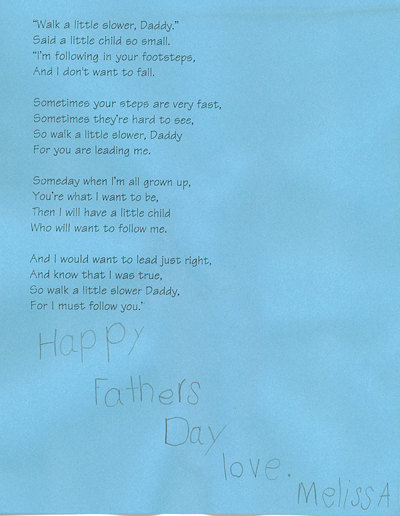 "Walk a little slower, Daddy."
Said a little child so small.
"I'm following in your footsteps,
And I don't want to fall.
Sometimes your steps are very fast,
Sometimes they're hard to see,
So walk a little slower, Daddy
For you are leading me.
Someday when I'm all grown up,
You're what I want to be,
Then I will have a little child
Who will want to follow me.
And I would want to lead just right,
And know that I was true,
So walk a little slower Daddy,
For I must follow you."
Happy
Fathers
Day
love.
MelissA